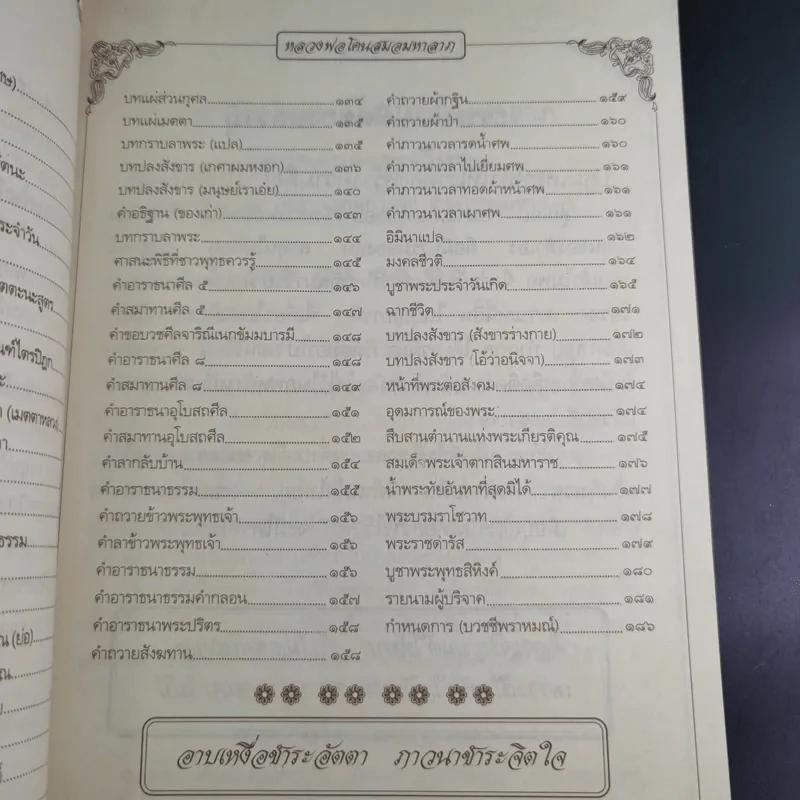 หลวงพ่อโคนสมอมหาลาภ
บทแผ่ส่วนกุศล ๑๓๔
บทแผ่เมตตา ๑๓๕
บทกราบลาพระ (แปล) ๑๓๕
บทปลงสังขาร (เกศาผมหงอก) ๑๓๖
บทปลงสังขาร (มนุษย์เราเอ๋ย) ๑๔๐
คำอธิฐาน (ของเก่า) ๑๔๓
บทกราบลาพระ ๑๔๔
ศาสนะพิธีที่ชาวพุทธควรรู้ ๑๔๕
คำอาราธนาศีล ๕ ๑๔๖
คำสมาทานศีล ๕ ๑๔๗
คำขอบวชศีลจาริณีเนกขัมมบารมี ๑๔๘
คำอาราธนาศีล ๘ ๑๔๘
คำสมาทานศีล ๘ ๑๔๙
คำอาราธนาอุโบสถศีล ๑๕๑
คำสมาทานอุโบสถศีล ๑๕๒
คำลากลับบ้าน ๑๕๔
คำอาราธนาธรรม ๑๕๕
คำถวายข้าวพระพุทธเจ้า ๑๕๖
คำลาข้าวพระพุทธเจ้า ๑๕๖
คำอาราธนาธรรม ๑๕๖
คำอาราธนาธรรมคำกลอน ๑๕๗
คำอาราธนาพระปริตร ๑๕๘
คำถวายสังฆทาน ๑๕๘
คำถวายผ้ากฐิน ๑๕๙
คำถวายผ้าป่า ๑๖๐
คำภาวนาเวลารดน้ำศพ ๑๖๐
คำภาวนาเวลาไปเยี่ยมศพ ๑๖๑
คำภาวนาเวลาทอดผ้าหน้าศพ ๑๖๑
คำภาวนาเวลาเผาศพ ๑๖๑
อิมินาแปล ๑๖๒
มงคลชีวติ ๑๖๔
บูชาพระประจำวันเกิด ๑๖๕
ฉากชีวิต ๑๗๑
บทปลงสังขาร (สังขารร่างกาย) ๑๗๒
บทปลงสังขาร (โอ้ว่าอนิจจา) ๑๗๓
หน้าที่พระต่อสังคม ๑๗๔
อุดมการณ์ของพระ ๑๗๔
สืบสานตำนานแห่งพระเกียรติคุณ ๑๗๕
สมเด็จพระเจ้าตากสินมหาราช ๑๗๖
น้ำพระทัยอันหาที่สุดมิได้ ๑๗๗
พระบรมราโชวาท ๑๗๘
พระราชดำรัส ๑๗๙
บูชาพระพุทธสิหิงค์ ๑๘๐
รายนามผู้บริจาค ๑๘๑
กำหนดการ (บวชชีพราหมณ์) ๑๘๖
อาบเหงื่อชำระอัตตา ภาวนาชำระจิตใจ